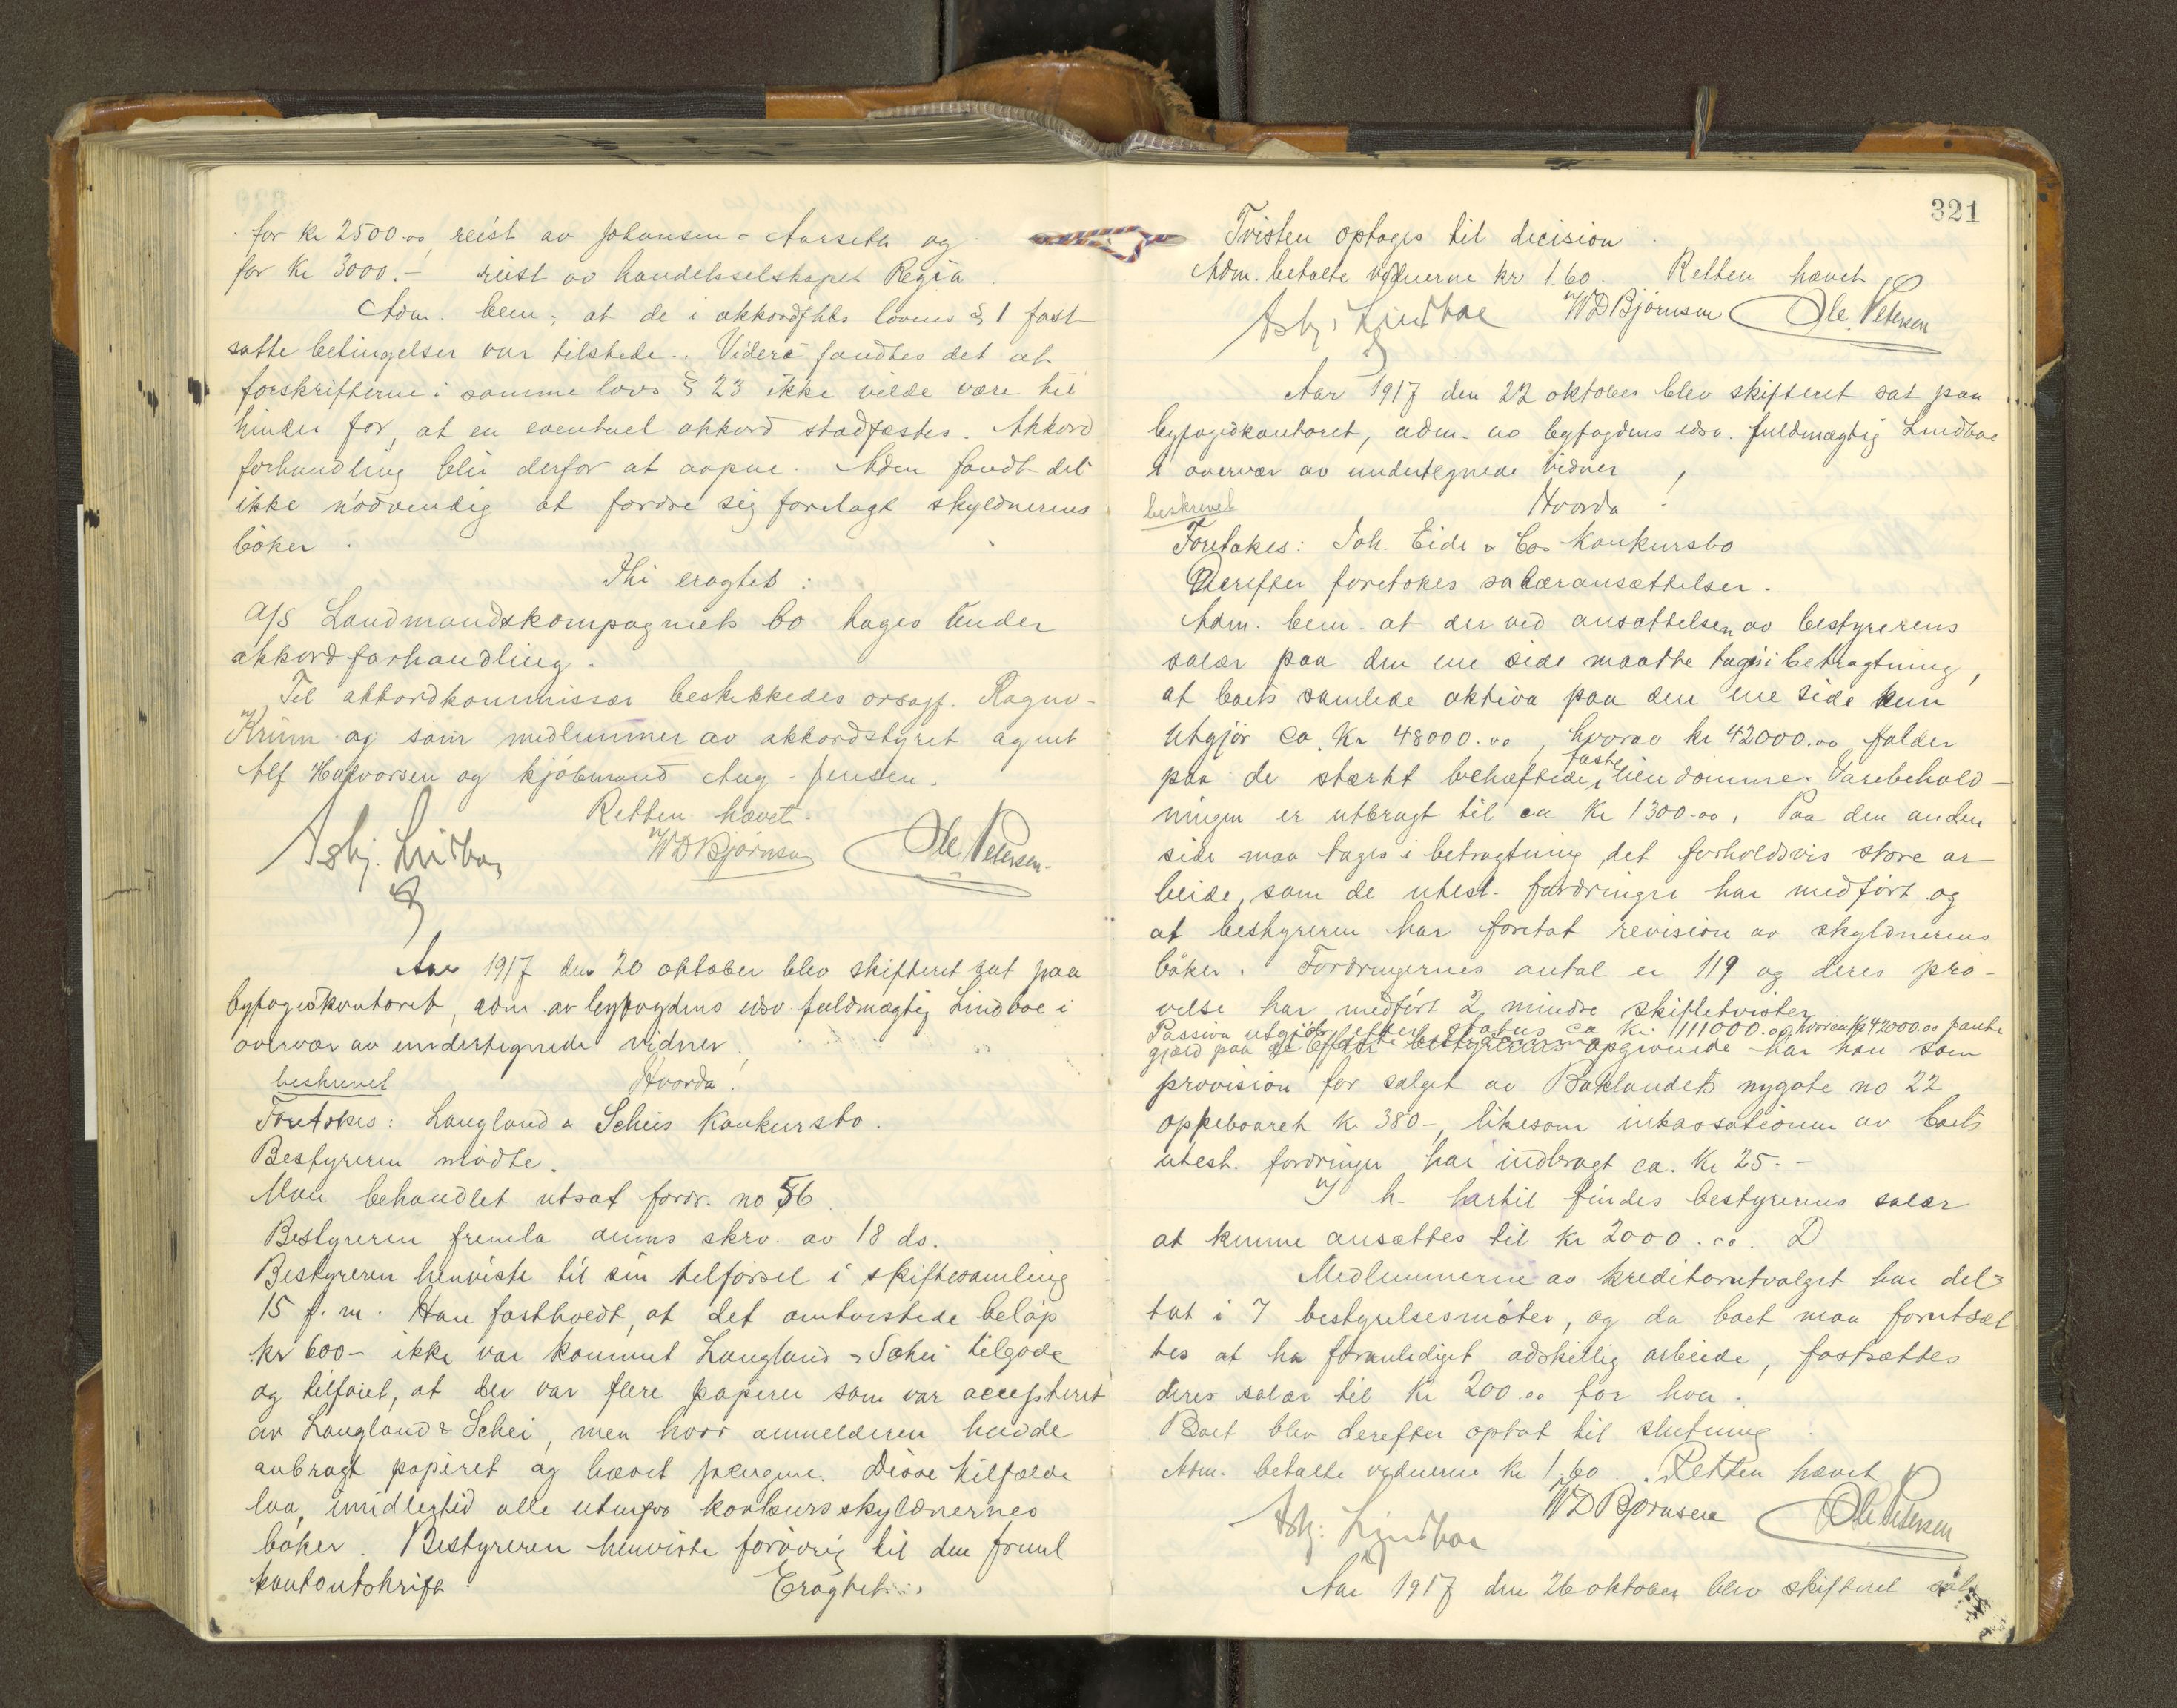 for kr 2500.00 reist av Johansen & Aarseth og
for Kr 3000.- reist av handelsselskapet Regia.
Adm. bem: at de i akkordfhls lovens § 1 fast
satte betingelser var tilstede. Videre fandtes det at
forskrifterne i samme lovs § 23 ikke vilde være til
hinder for, at en eventuel akkord stadfæstes. Akkord
forhandling blir derfor at aapne. Adm fandt det
ikke nödvendig at fordre sig forelagt skyldnerens
böker.
Thi eragtes:
A/S Landmandskompagniets bo tages under
akkordforhandling.
Til akkordkommissær beskikkedes orsagf. Ragnv.
Krüm og som medlemmer av akkordstyret agent
Alf Halvorsen og kjöbmand Aug. Jensen.
Retten hævet.
Asbj. Lindboe WD Bjørnson Ole Petersen.
Aar 1917 den 20 oktober blev skifteret sat paa
byfogedkontoret, adm. av byfogdens edsv. fuldmægtig Lindboe i
overvær av undertegnede vidner.
beskrevet Hvorda!
Foretokes: Langland & Scheis Konkursbo.
Bestyreren mödte.
Man behandlet utsat fordr. no 56.
Bestyreren fremla anms skrv. av 18 ds.
Bestyreren henviste til sin tilförsel i skiftesamling
15 f. m. Han fastholdt, at det omtvistede belöp
kr 600- ikke var kommet Langland & Schei tilgode
og tilföiet, at der var flere papirer som var accepteret
av Langland & Schei, men hvor anmelderen hadde
anbragt papiret og hævet pengene. Disse tilfælde
laa, imidlertid alle utenfor konkursskyldnernes
böker. Bestyreren henviste forövrig til den freml
kontoutskrift. Eragtet:
321
Tvisten optages til decision.
Adm. betalte vidnerne kr 1.60. Retten hævet
Asbj. Lindboe WD Bjørnson Ole Petersen
Aar 1917 den 22 oktober blev skifteret sat paa
byfogedkontoret, adm. av byfogdens edsv. fuldmægtig Lindboe
i overvær av undertegnede vidner,
beskrevet Hvorda!
Foretokes: Joh. Eide & Co. Konkursbo
Derefter foretokes salæransættelser.
Adm. bem. at der ved ansættelsen av bestyrerens
salær paa den ene side maatte tages i betragtning,
at boets samlede aktiva paa den ene side kun
utgjör ca. Kr 48000.00, hvorav kr 42000.00 falder
paa de stærkt behæftede faste eiendomme. Varebehold-
ningen er utbragt til ca Kr 1300.00. Paa den anden
side maa tages i betragtning det forholdsvis store ar-
beide, som de utest. fordringer har medført og
at bestyreren har foretat revision av skyldnerens
böker. Fordringernes antal er 119 og deres prö-
velse har medfört 2 mindre skiftetvister.
Passiva utgjör efter status ca kr. 111000.00, hvorav kr 42000.00 pante
gjæld paa de faste eiendomme.
Efter bestyrerens opgivende har han som
provision for salget av Baklandets nygate no 22
oppebaaret kr 380-, likesom inkassationen av boets
utest. fordringer har indbragt ca. Kr 25.-
I h. hertil findes bestyrerens salær
at kunne ansættes til Kr 2000.00. D
Medlemmerne av kreditorutvalget har del-
tat i 7 bestyrelsesmöter, og da boet maa forutsæt
tes at ha foranlediget adskillig arbeide, fastsættes
deres salær til Kr 200.00 for hver.
Boet blev derefter optat til slutning.
Adm. betalte vidnerne Kr 1.60. Retten hævet
Asbj. Lindboe WD Bjørnson Ole Petersen
Aar 1917 den 26 oktober blev skifteret sat